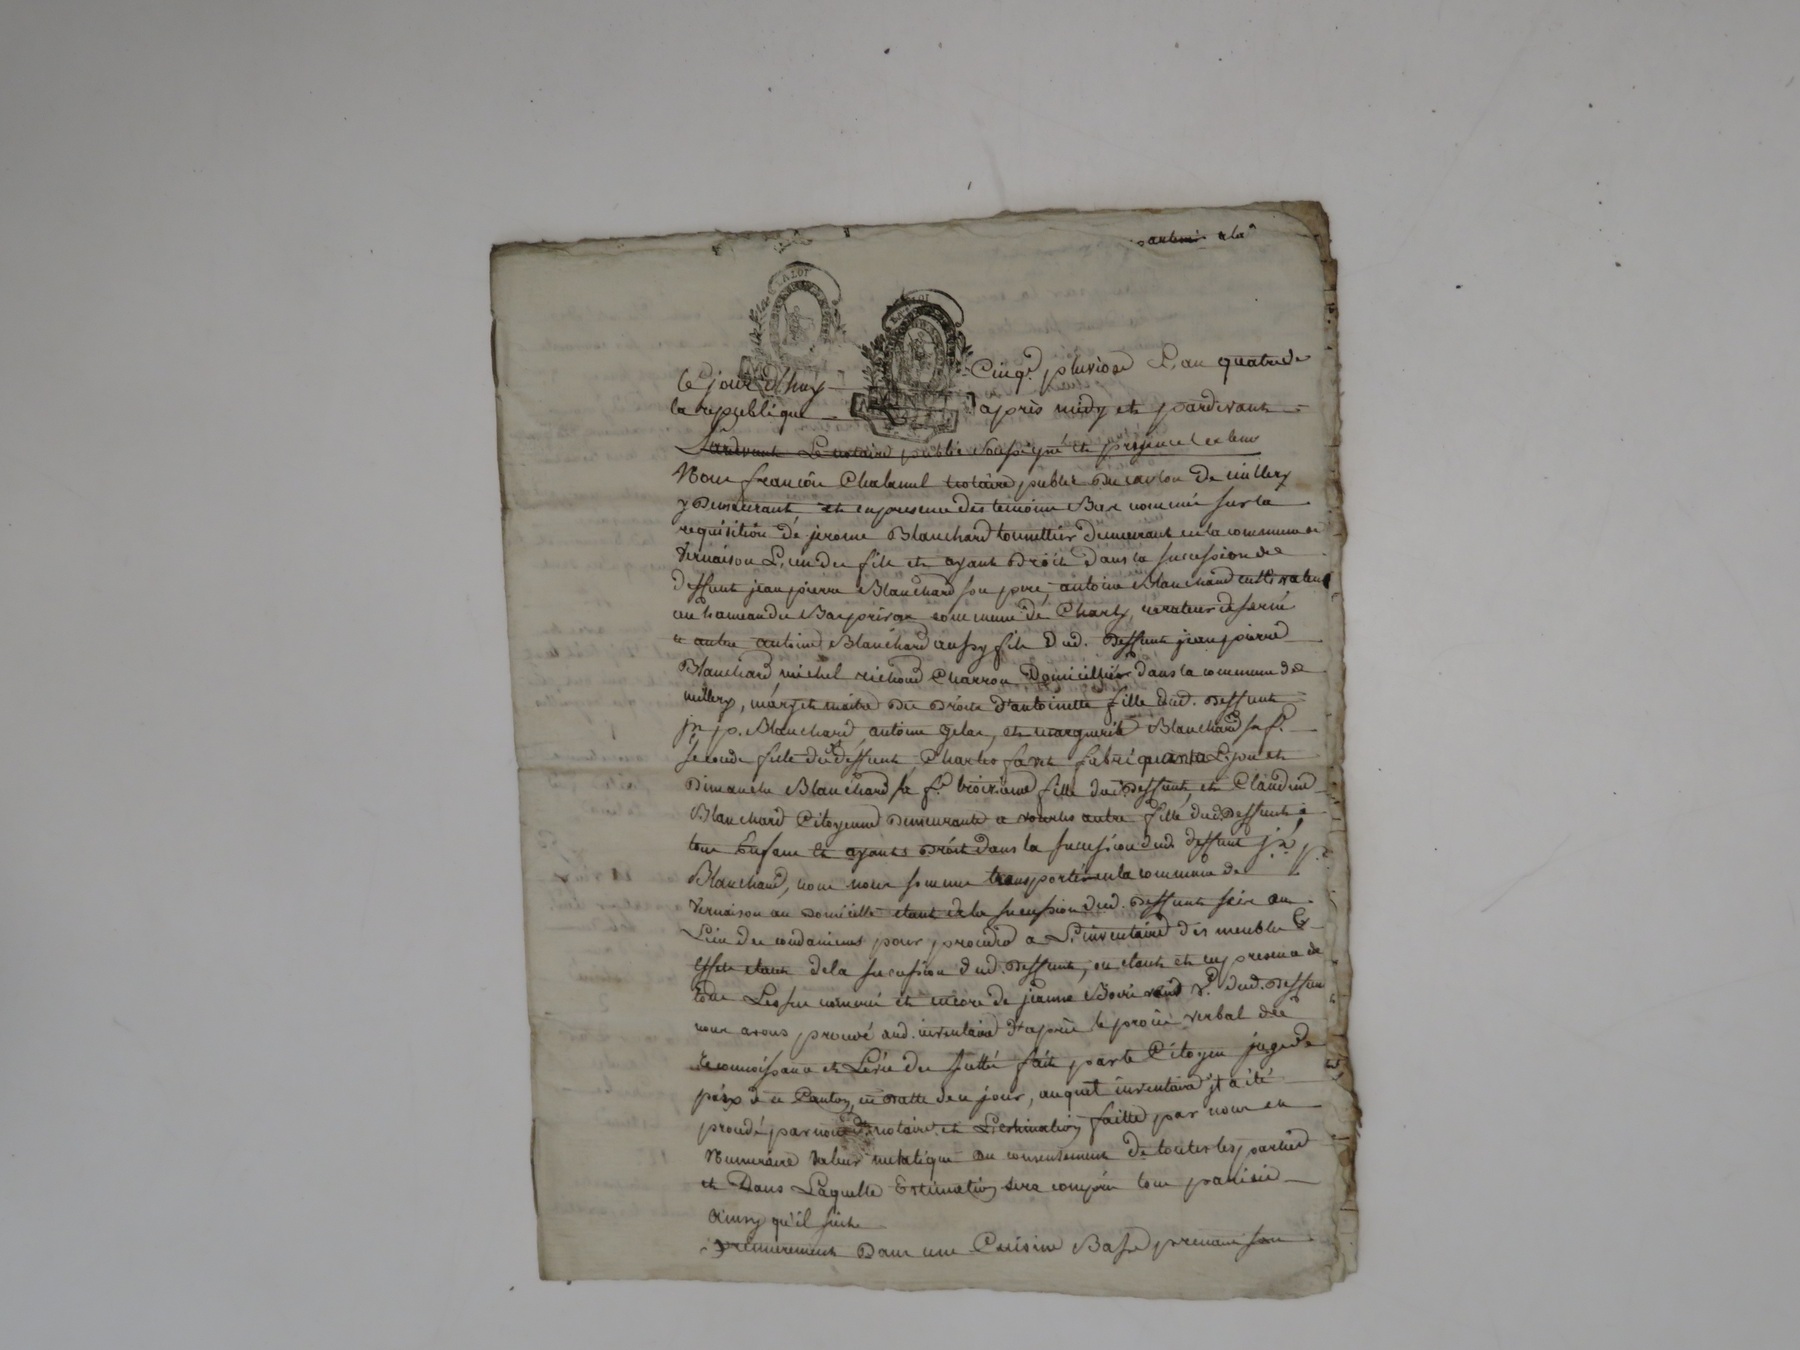 a la
LA LOI
LA LOI
Ce jour d'huy Cinq. pluviose L'an quatre de
la republique d'après midy et pardevant
Pardevant Le notaire public soussigné et presence
Nous françois notaire public du canton de millery
y Demeurant et en presence des temoins Bas nommé sur la
requisition de jerome Blanchard tonnellier demeurant en la commune de
Vernaison L'un des fils et ayant Droit dans la succession de
deffunt jean pierre Blanchard son pere, antoine Blanchard cultivateur
au hameau de commune de Charly, curateur
a autre antoine Blanchard aussy fils dud. deffunt jean pierre
Blanchard michel richoud Charron Domicillier dans la commune de
millery, mary et maitre des Droits d'antoinette fille dud. deffunt
jn p. Blanchard, antoine et marguerite Blanchard sa f.
seconde fille dud. deffunt, Charles favre fabriquant a Lyon et
Dimanche Blanchard sa f. troisieme fille dud. deffunt, et Claudine
Blanchard Citoyenne Demeurante a vourles autre fille dud. Deffunt
tous Enfans et ayants Droit dans la succession dud. deffunt jn p.
Blanchard, nous nous sommes transporté en la commune de
Vernaison au Domicille etant de la succession dud. Deffunt scis au
Lieu des condamines pour procedé a L'inventaire des meubles &
effets etant de la succession dud. Deffunt, ou etant et en presence de
tous Les sus nommé et encore de jeanne v. dud. Deffunt
nous avons procedé aud. inventaire d'après le procès verbal de
Reconnoissance et Levée des scellé fait par le Citoyen juge de
paix de ce Canton, en datte de ce jour, auquel inventaire jl a été
procedé par nous d. notaire et L'estimation faitte par nous en
Numeraire valeur metalique du consentement de toutes les parties
et Dans Laquelle Estimation sera compris tous
Ainsy qu'il suit
premierement Dans une Cuisine Basse prenant son